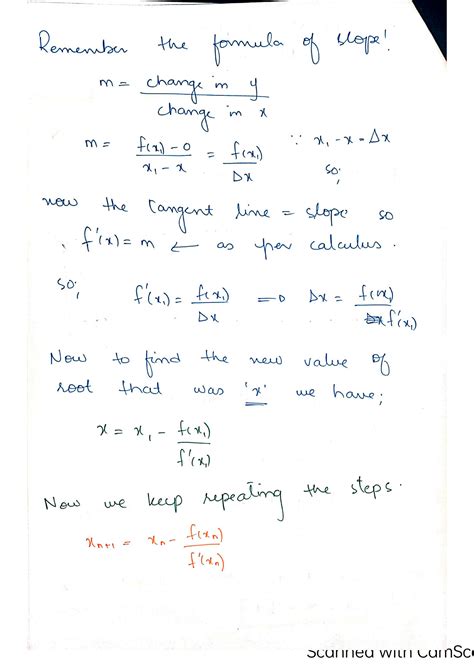 Remember the formula of slope!
m = change in y / change in x
m = f(x₁) - 0 / x₁ - x = f(x₁) / Δx ∵ x₁ - x = Δx
so;
now the tangent line = slope so
f'(x) = m ← as per calculus.
so; f'(x₁) = f(x₁) / Δx ⇒ Δx = f(x₁) / f'(x₁)
Now to find the new value of
root that was 'x' we have;
x = x₁ - f(x₁) / f'(x₁)
Now we keep repeating the steps.
xₙ₊₁ = xₙ - f(xₙ) / f'(xₙ)
Scanned with CamSc